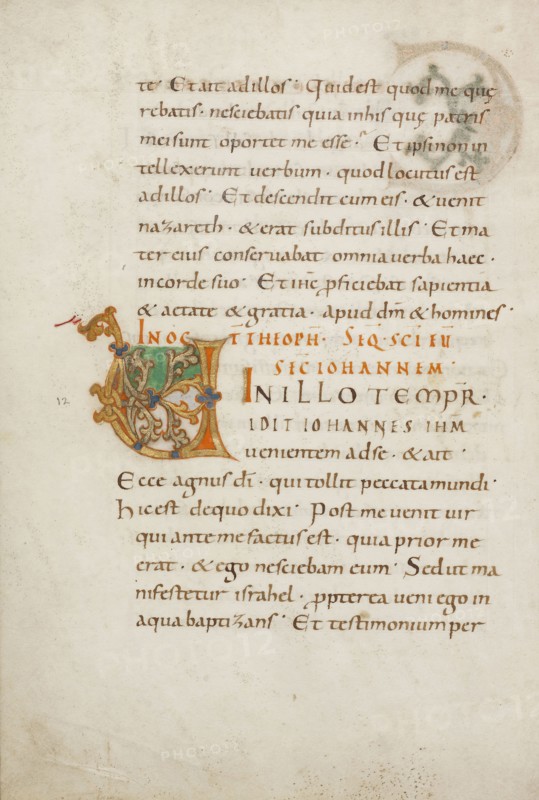 te · Et ait ad illos · Quid est quod me quę
rebatis · nesciebatis quia in his quę patris
mei sunt oportet me esse · Et ipsi non in
tellexerunt verbum · quod locutus est
ad illos · Et descendit cum eis · & venit
nazareth · & erat subditus illis · Et ma
ter eius conservabat omnia verba haec ·
in corde suo · Et ihc̄ p̱ficiebat sapientia
& aetate & gratia · apud dm̄ & homines ·
IN OCT̄ THEOPH̄ · SEQ̄ · SCI EU
SEC̄ IOHANNEM
IN ILLO TEMPR̄ ·
VIDIT IOHANNES IHM̄
venientem ad se · & ait ·
Ecce agnus dī · qui tollit peccata mundi ·
hic est de quo dixi · Post me venit vir
qui ante me factus est · quia prior me
erat · & ego nesciebam eum · Sed ut ma
nifestetur israhel · p̱pterea veni ego in
aqua baptizans · Et testimonium per
12